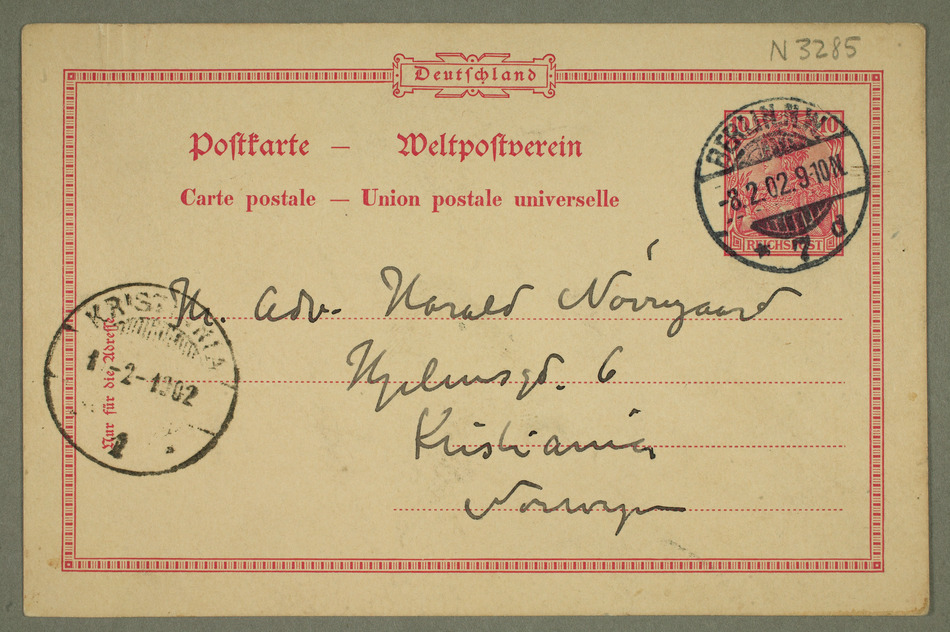 N 3285
Deutschland
Postkarte — Weltpostverein
Carte postale — Union postale universelle
10 10
REICHSPOST
BERLIN N.W.
-8.2.02.9-10N.
* 7 d
KRISTIANIA
-2-1902
1
Nur für die Adresse
H. Adv. Harald Nörregaard
Hjelmsgd. 6
Kristiania
Norwegen